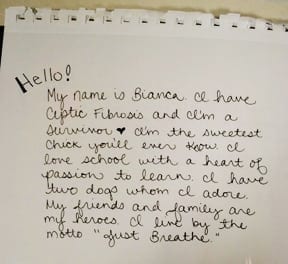 Hello!
My name is Bianca. I have
Cyptic Fibrosis and I'm a
survivor ♥ I'm the sweetest
chick you'll ever know. I
love school with a heart of
passion to learn. I have
two dogs whom I adore.
My friends and family are
my heroes. I live by the
motto "Just Breathe."